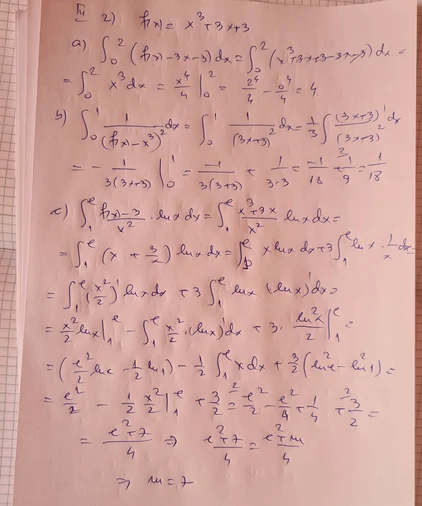 III 2) f(x) = x³+3x+3
a) ∫₀² (f(x)-3x-3)dx = ∫₀² (x³+3x+3-3x-3)dx =
= ∫₀² x³dx = x⁴/4 |₀² = 2⁴/4 - 0⁴/4 = 4
b) ∫₀¹ 1/(f(x)-x³)² dx = ∫₀¹ 1/(3x+3)² dx = 1/3 ∫ (3x+3)'/(3x+3)² dx
= - 1/(3(3x+3)) |₀¹ = -1/(3(3+3)) + 1/(3·3) = -1/18 + ²⁾1/9 = 1/18
c) ∫₁ᵉ (f(x)-3)/x² · ln x dx = ∫₁ᵉ (x³+3x)/x² ln x dx =
= ∫₁ᵉ (x + 3/x) ln x dx = ∫₁ᵉ x ln x dx + 3 ∫₁ᵉ ln x · 1/x dx
= ∫₁ᵉ (x²/2)' ln x dx + 3 ∫₁ᵉ ln x (ln x)' dx =
= x²/2 ln x |₁ᵉ - ∫₁ᵉ x²/2 · (ln x)' dx + 3 · ln²x/2 |₁ᵉ =
= (e²/2 ln e - 1/2 ln 1) - 1/2 ∫₁ᵉ x dx + 3/2 (ln²e - ln²1) =
= e²/2 - 1/2 x²/2 |₁ᵉ + 3/2 = ²⁾e²/2 - e²/4 + 1/4 + ²⁾3/2 =
= (e²+7)/4 ⇒ (e²+7)/4 = (e²+m)/4
⇒ m = 7